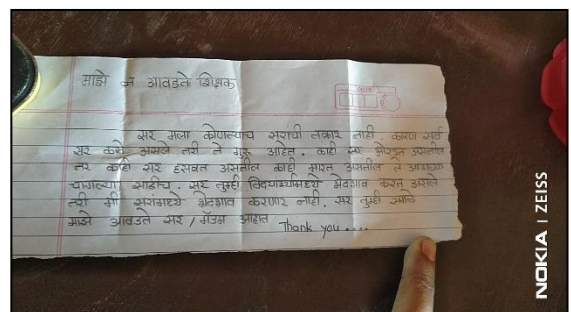 माझे न आवडते शिक्षक
सर मला कोणत्याच सराची तक्रार नाही. कारण सर्व
सर कसे असले तरी ते गुरू आहेत. काही सर ओरडत असतील
तर काही सर हसवत असतील काही मारत असतील ते आपल्या
चांगल्या साठीच. सर तुम्ही विद्यार्थ्यांमध्ये भेदभाव करत असाल
तरी मी सरांमध्ये भेदभाव करणार नाही. सर तुम्ही सगळे
माझे आवडते सर / मॅडम आहात
Thank you ....
NOKIA | ZEISS